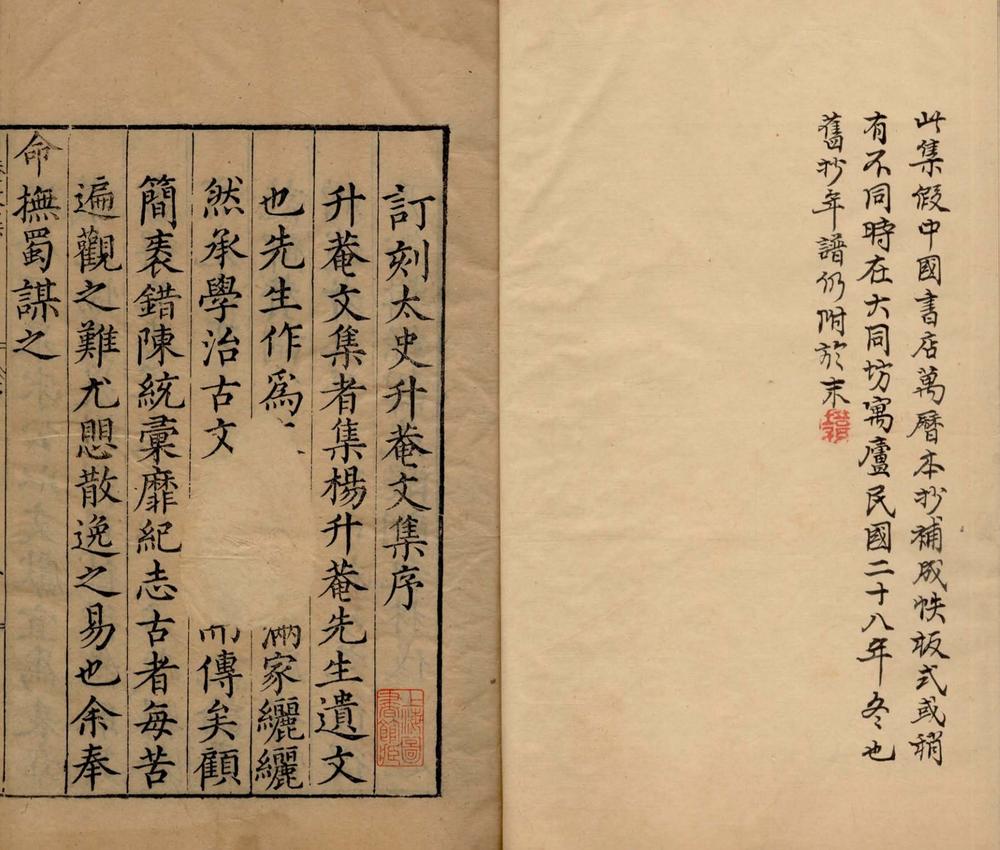 此集假中國書店萬曆本抄補成帙版式或稍
有不同時在大同坊寓廬民國二十八年冬也
舊抄年譜仍附於末
訂刻太史升菴文集序
上海圖書館藏
升菴文集者集楊升菴先生遺文
也先生作爲 家纚纚
然承學治古文 而傳矣顧
簡袠錯陳統彙靡紀志古者每苦
遍觀之難尤愳散逸之易也余奉
命撫蜀謀之